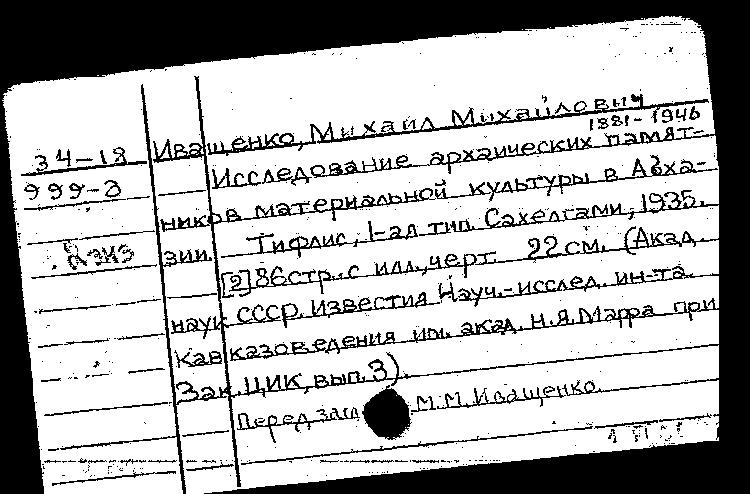 Иващенко, Михаил Михайлович
1881-1946
34-18
Исследование архаических памят-
999-д
ников материальной культуры в Абха-
зии. Тифлис, 1-ая тип. Сахелгами, 1935.
[2] 86 стр. с илл., черт. 22 см. (Акад.
наук СССР. Известия Науч.-исслед. ин-та
Кавказоведения им. акад. Н.Я. Марра при
Зак. ЦИК, вып. 3).
Перед загл. М.М. Иващенко.